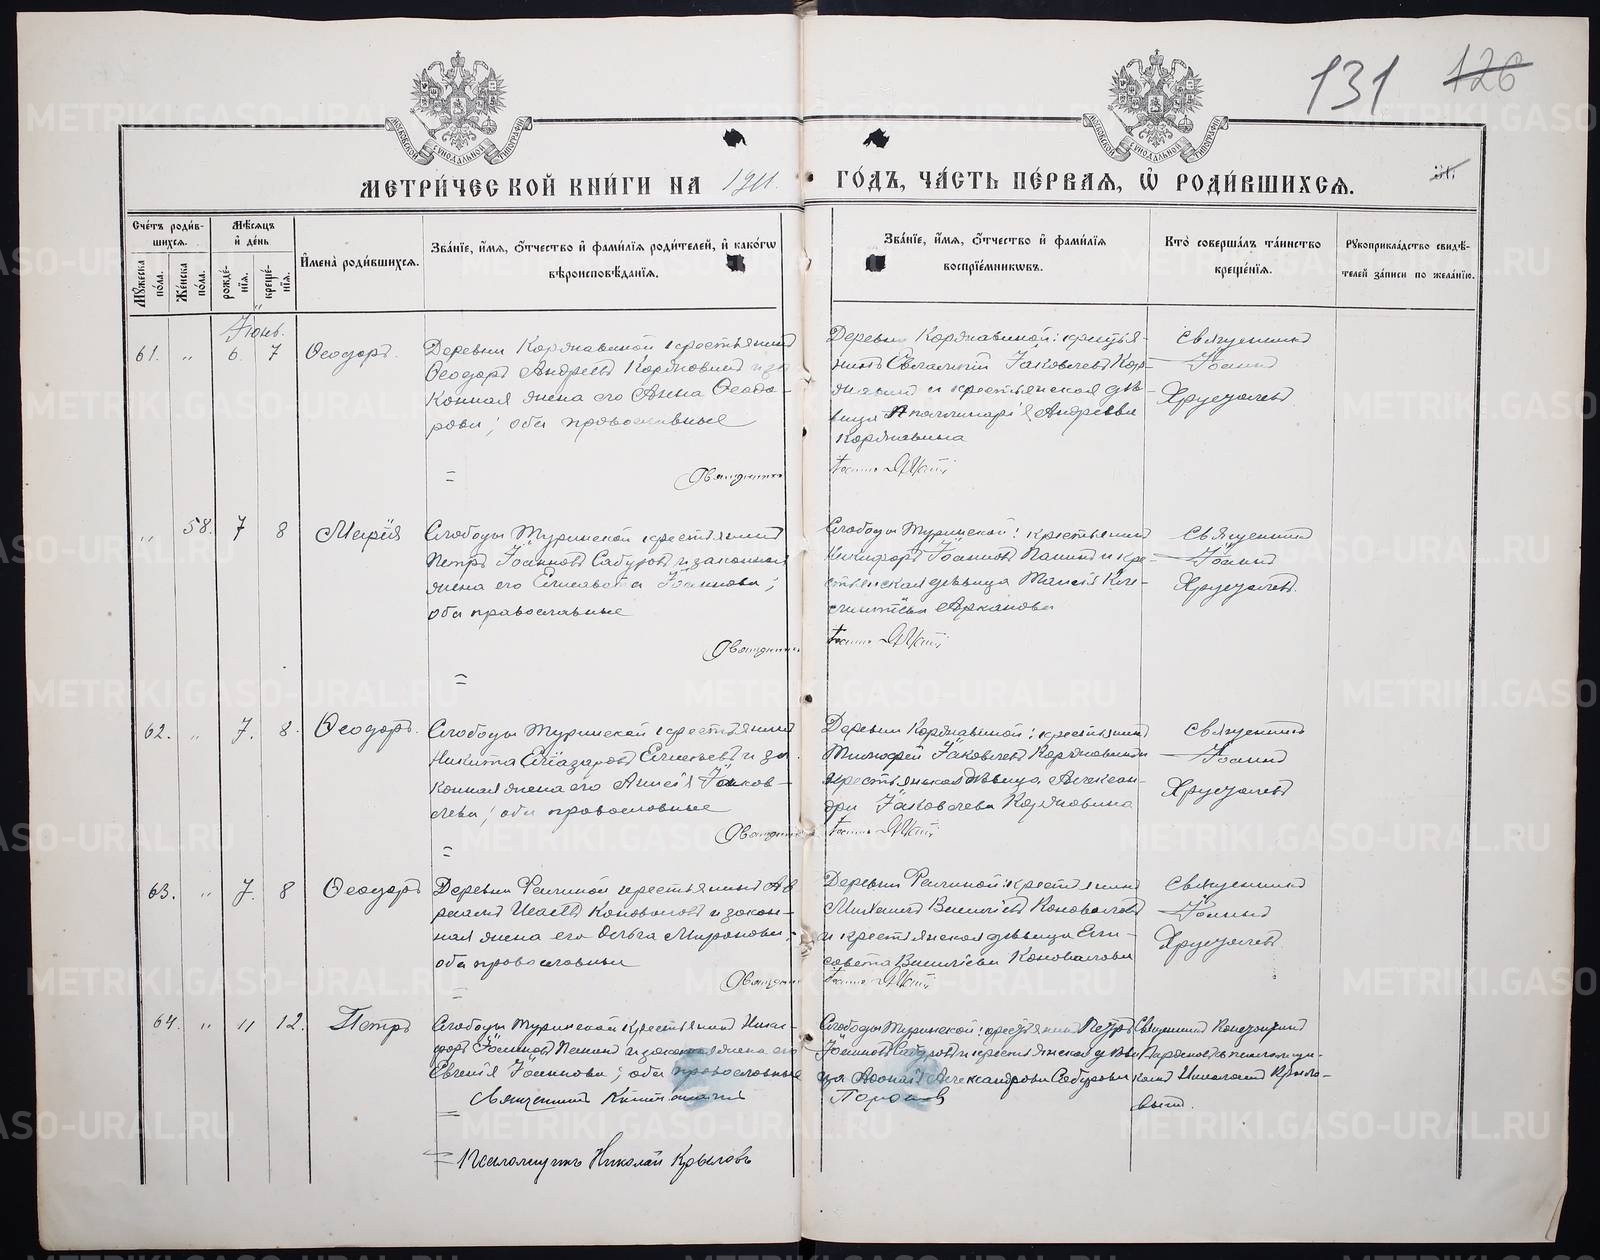 131 126
МЕТРИ́ЧЕСКОЙ КНИ́ГИ НА 1911. ГО́ДЪ, ЧА́СТЬ ПЕ́РВАѦ, Ѡ҆ РОДИ́ВШИХСѦ.
31.
Сче́тъ роди́в-
шихсѧ.
Мꙋ́жеска по́ла.
Же́нска по́ла.
Мѣ́сѧцъ и҆ де́нь
рожде́-
нїѧ.
креще́-
нїѧ.
И҆мена̀ роди́вшихсѧ.
Зва́нїе, и҆́мѧ, ѻ҆́тчество и҆ фами́лїѧ роди́телей, и҆ како́гѡ
вѣроисповѣ́данїѧ.
Зва́нїе, и҆́мѧ, ѻ҆́тчество и҆ фами́лїѧ
воспрїе́мникѡвъ.
Кто̀ соверша́лъ та́инство
креще́нїѧ.
Рꙋкоприкла́дство свидѣ́-
телей за́писи по жела́нїю.
Іюнь.
61. " 6. 7 Ѳеодоръ.
Деревни Корявиной крестьянинъ
Ѳеодоръ Андреевъ Корявинъ и за
конная жена его Анна Ѳеодо-
рова; оба православные
Священникъ
Деревни Корявиной: крестья-
нинъ Яковлевъ Кор-
явинъ и крестьянская дѣ-
вица Апполинарія Андреева
Корявина
Священникъ
Іоаннъ
Хрусталевъ.
" 58. 7 8 Марія
Слободы Туринской крестьянинъ
Петръ Іоанновъ Сабуровъ и законная
жена его Елисавета Іоаннова;
оба православные
Священникъ
Слободы Туринской: крестьянинъ
Никифоръ Іоанновъ Панинъ и кре-
стьянская дѣвица Таисія
Арканова
Священникъ
Іоаннъ
Хрусталевъ.
62. " 7. 8. Ѳеодоръ.
Слободы Туринской крестьянинъ
Никита Еліазаровъ и за
конная жена его Анисія Іаков-
лева; оба православные
Священникъ
Деревни Корявиной: крестьянинъ
Тимофей Іаковлевъ Корявинъ и
крестьянская дѣвица Алексан-
дра Іаковлева Корявина
Священникъ
Іоаннъ
Хрусталевъ
63. " 7. 8 Ѳеодоръ
Деревни Речкиной крестьянинъ Ав
раамъ Исаевъ Коноваловъ и закон-
ная жена его Ольга Миронова;
оба православные
Священникъ
Деревни Речкиной: крестьянинъ
Михаилъ Васильевъ Коноваловъ
и крестьянская дѣвица Ели-
савета Васильева Коновалова
Священникъ
Іоаннъ
Хрусталевъ
64. " 11 12. Петръ
Слободы Туринской крестьянинъ Ники-
форъ Іоанновъ Панинъ и законная жена его
Евгенія Іоаннова; оба православные
Священникъ
Слободы Туринской: крестьянинъ Петръ
Іоанновъ Сабуровъ и крестьянская дѣви
ца Александрова Сабурова
Священникъ
съ псаломщи-
комъ Николаемъ Крыло-
вымъ.
Псаломщикъ Николай Крыловъ